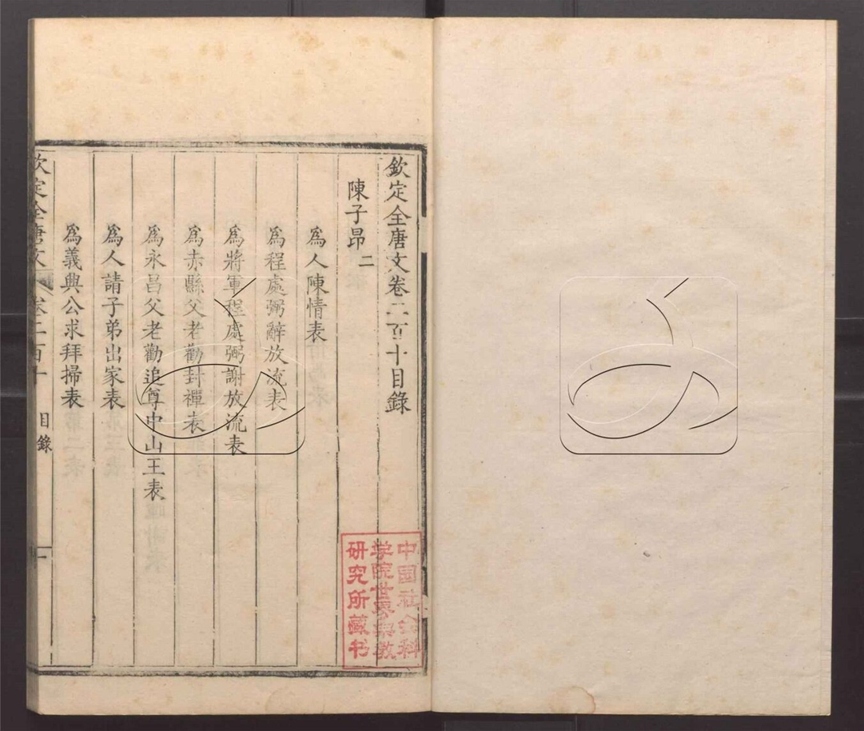 欽定全唐文卷二百十目錄
陳子昂 二
為人陳情表
為程處弼辭放流表
為將軍程處弼謝放流表
為赤縣父老勸封禪表
為永昌父老勸追尊中山王表
為人請子弟出家表
為義興公求拜掃表
欽定全唐文 卷二百十 目錄 一
中国社会科
学院世界宗教
研究所藏书